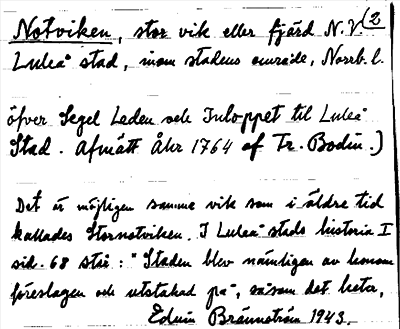 Notviken, stor vik eller fjärd N.V. (2
Luleå stad, inom stadens område, Norrb. l.
öfver Segel Leden och Inloppet til Luleå
Stad. Afmätt Åhr 1764 af Tr. Bodin.)
Det är möjligen samma vik som i äldre tid
kallades Stornotviken. I Luleå stads historia I
sid. 68 står: "Staden blev nämligen av honom
föreslagen och utstakad på", såsom det heter,
Edvin Brännström 1943.